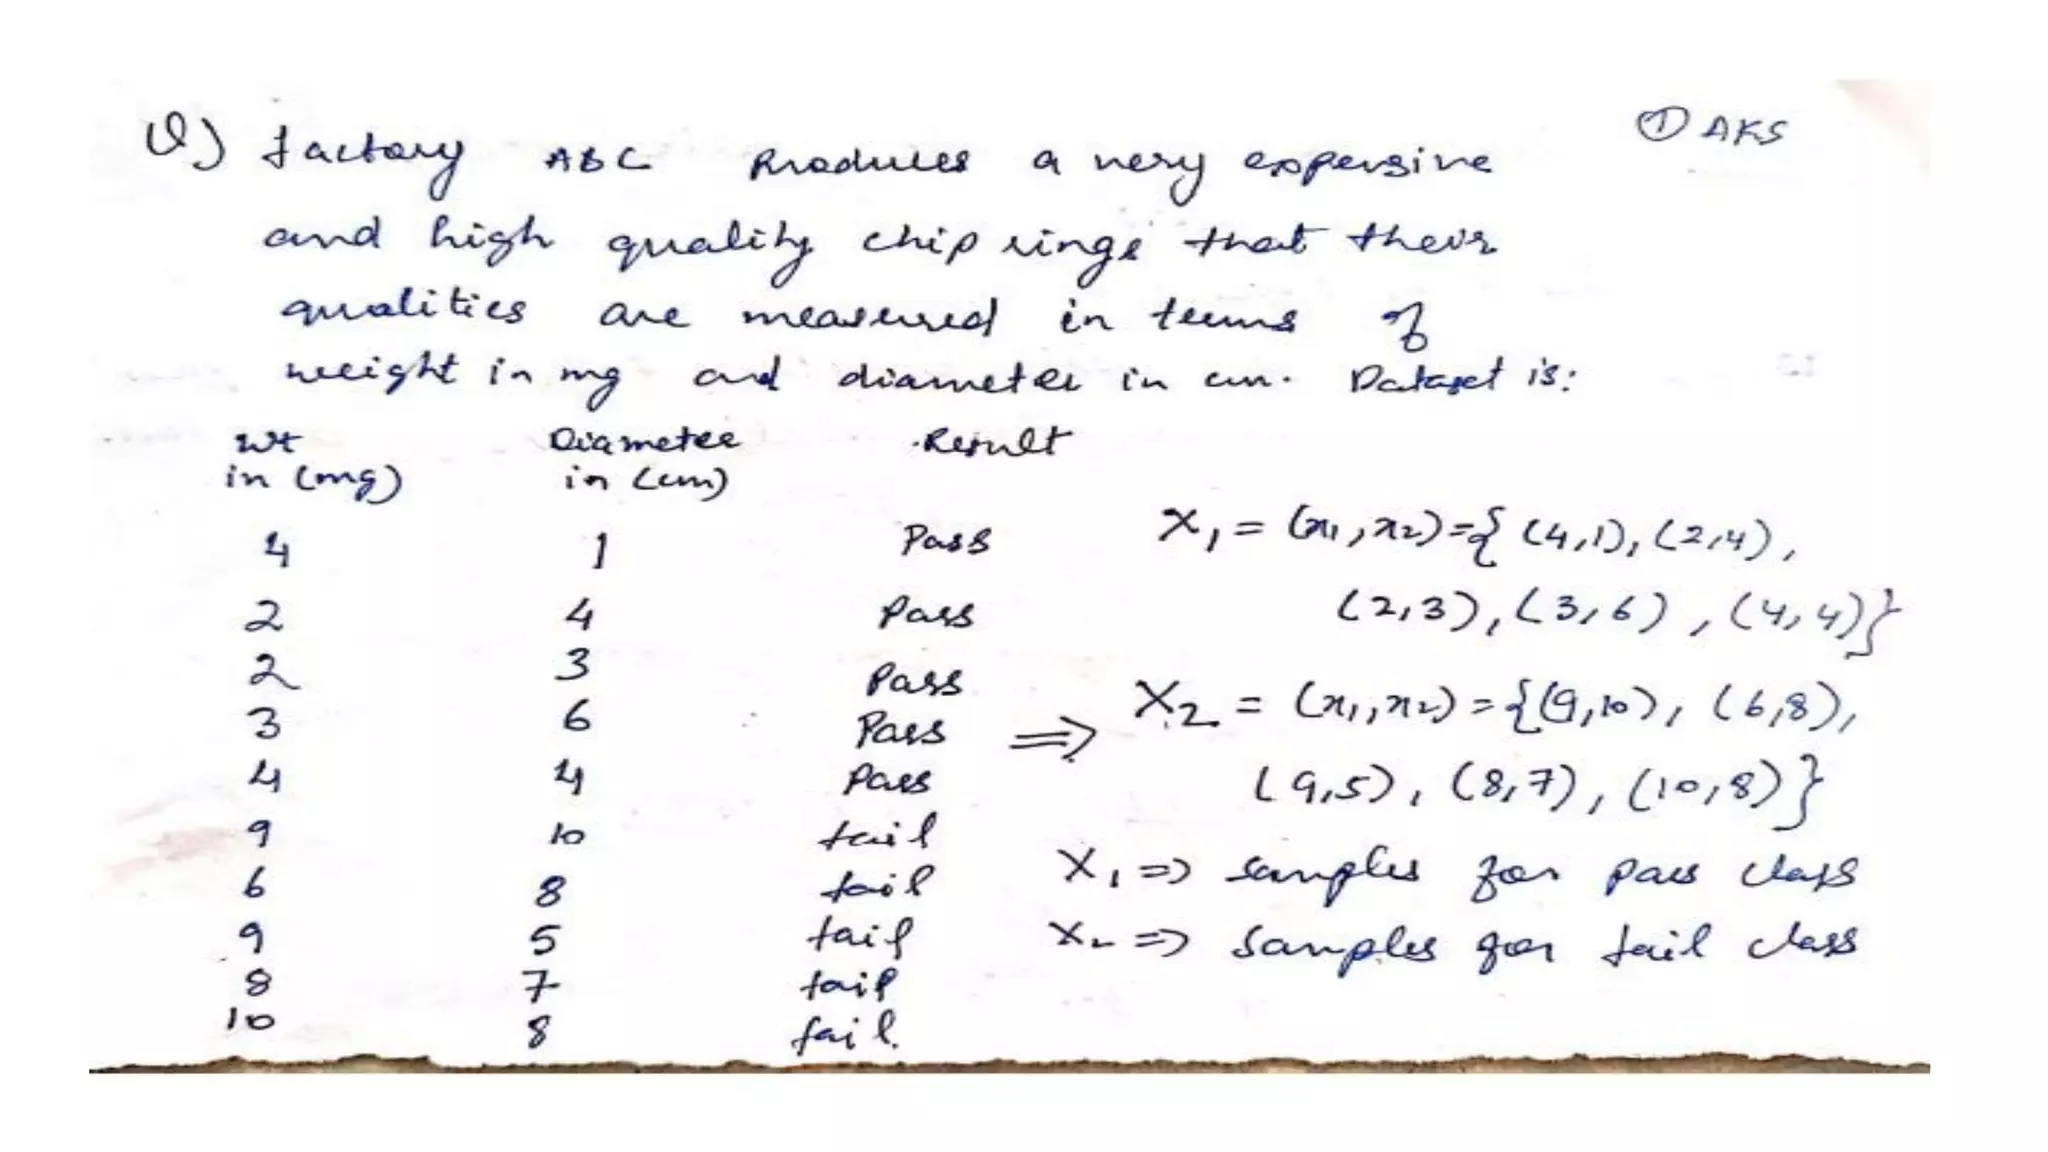 Q) Factory ABC Produces a very expensive
① AKS
and high quality chip rings that their
qualities are measured in terms of
weight in mg and diameter in cm. Dataset is:
Wt Diameter Result
in (mg) in (cm)
4 1 Pass X₁ = (x₁,x₂)={ (4,1), (2,4),
2 4 Pass (2,3), (3,6), (4,4)}
2 3 Pass
3 6 Pass ⇒ X₂ = (x₁,x₂) = {(9,10), (6,8),
4 4 Pass (9,5), (8,7), (10,8)}
9 10 fail
6 8 fail X₁ ⇒ samples for pass class
9 5 fail X₂ ⇒ Samples for fail class
8 7 fail
10 8 fail.